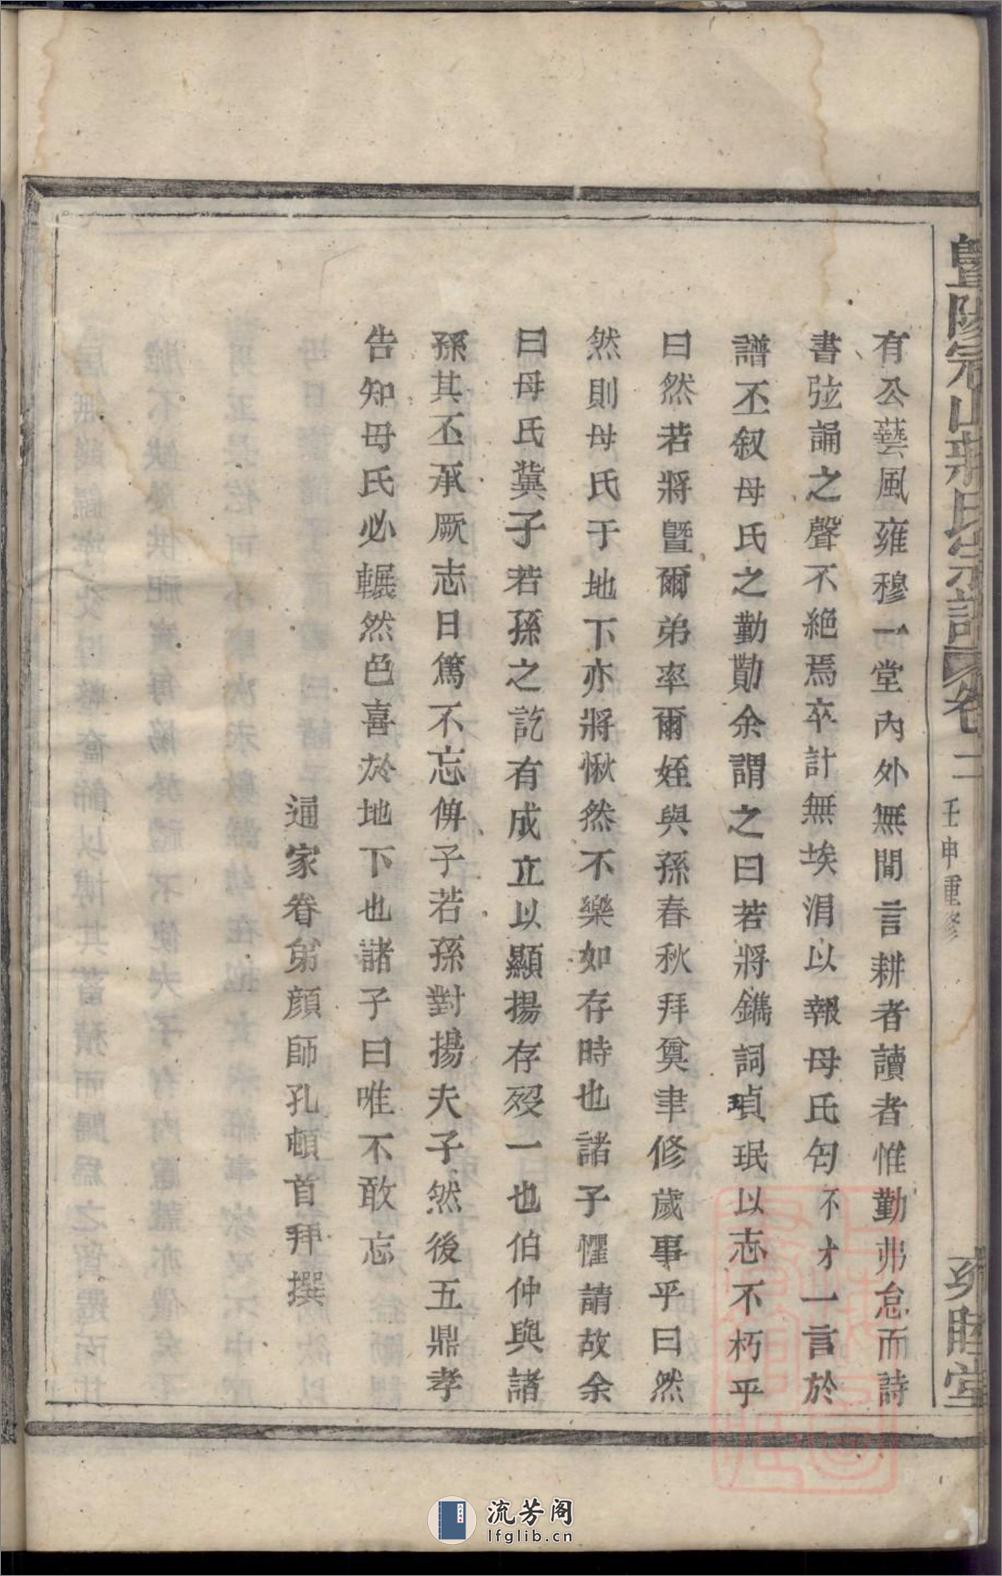 有公藝風雍穆一堂內外無閒言耕者讀者惟勤弗怠而詩
書弦誦之聲不絕焉卒計無埃涓以報母氏匄不才一言於
譜丕叙母氏之勤勩余謂之曰若將鐫詞瑱珉以志不朽乎
曰然若將曁爾弟率爾姪與孫春秋拜奠聿修歲事乎曰然
然則母氏于地下亦將愀然不樂如存時也諸子懼請故余
曰母氏冀子若孫之訖有成立以顯揚存殁一也伯仲與諸
孫其丕承厥志日篤不忘俾子若孫對揚夫子然後五鼎孝
告知母氏必囅然色喜於地下也諸子曰唯不敢忘
通家眷弟顏師孔頓首拜撰
卷二
壬申重修
雍睦堂
流芳阁
lfglib.cn